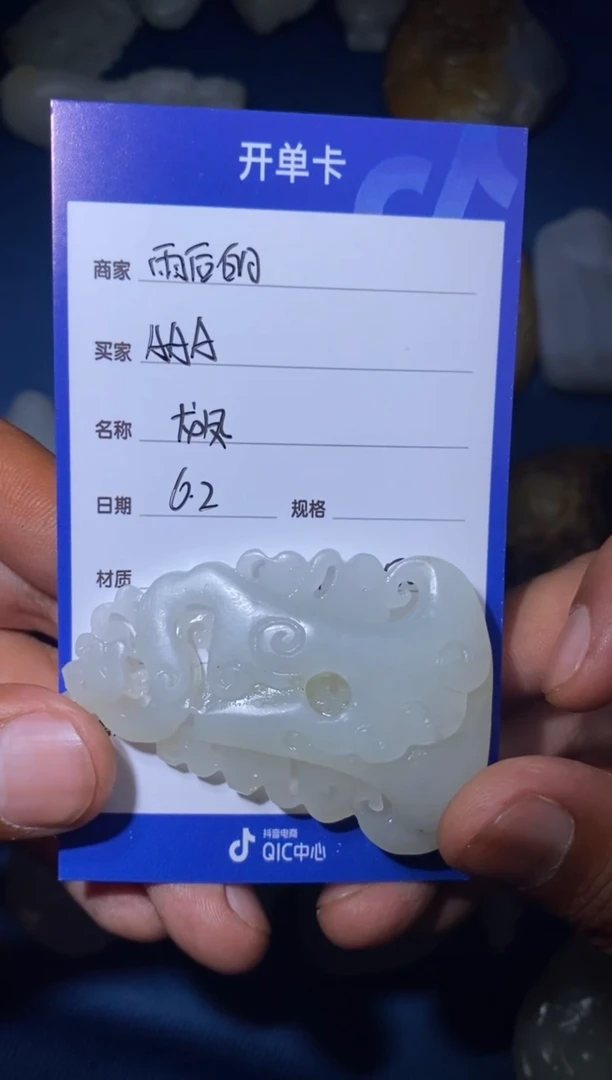 开单卡
商家 雨后的
买家 AAA
名称 龙凤
日期 6.2 规格
材质
抖音电商
QIC中心